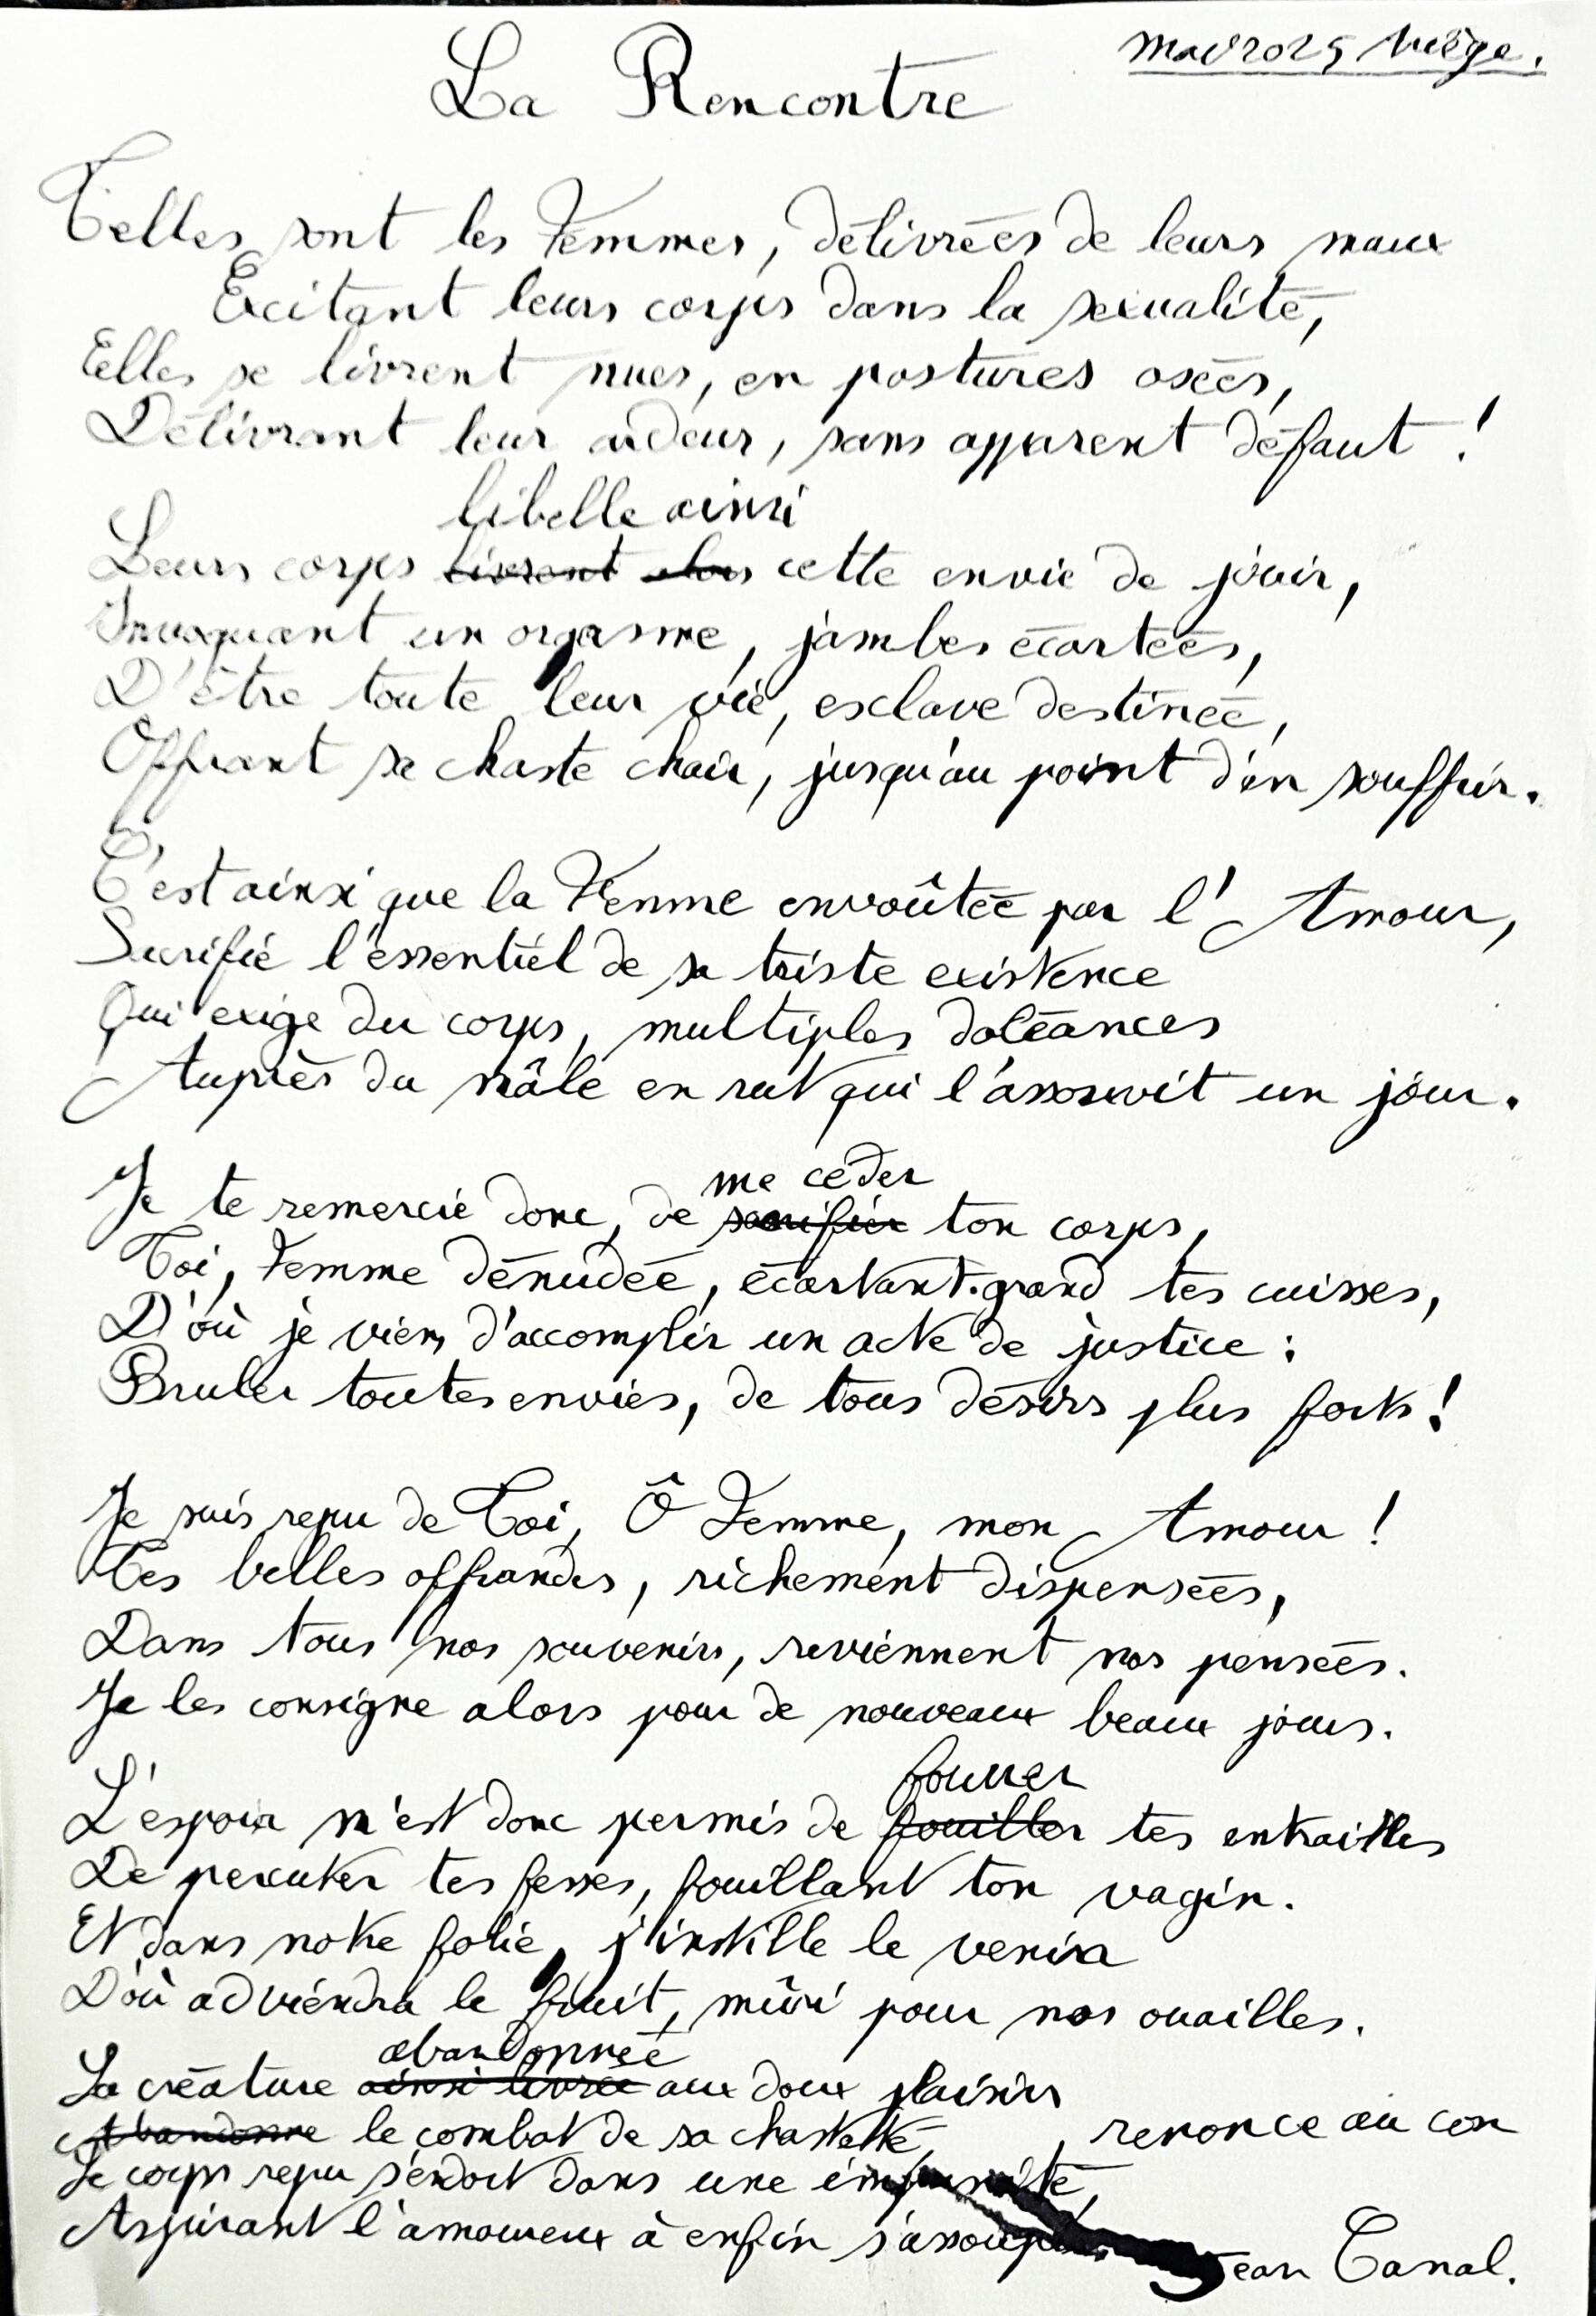 La Rencontre
Telles sont les Femmes, délivrées de leurs maux
Excitant leurs corps dans la sexualité,
Elles se livrent nues, en postures osées,
Délivrant leur ardeur, sans apparent défaut !
libelle ainsi
Leurs corps livrent alors cette envie de jouir,
Invoquant un orgasme, jambes écartées,
D'être toute leur vie, esclave destinée,
Offrant sa chaste chair, jusqu'au point d'en souffrir.
C'est ainsi que la Femme envoûtée par l'Amour,
Sacrifie l'essentiel de sa triste existence
Qui exige du corps, multiples doléances
Auprès du mâle en rut qui l'assouvit un jour.
me céder
Je te remercie donc, de sacrifier ton corps,
Toi, Femme dénudée, écartant grand tes cuisses,
D'où je viens d'accomplir un acte de justice :
Bruler toutes envies, de tous désirs plus forts !
Je suis repu de Toi, Ô Femme, mon Amour !
Tes belles offrandes, richement dispensées,
Dans tous nos souvenirs, reviennent nos pensées.
Je les consigne alors pour de nouveaux beaux jours.
fourrer
L'espoir m'est donc permis de fouiller tes entrailles
De percuter tes fesses, fouillant ton vagin.
Et dans notre folie, j'instille le venin
D'où adviendra le fruit, mûri pour nos ouailles.
abandonnée
La créature ainsi livrée aux doux plaisirs
Abandonne le combat de sa chasteté, renonce au con
Le corps repu s'endort dans une
Aspirant l'amoureux à enfin s'assoupir.
Jean Canal.